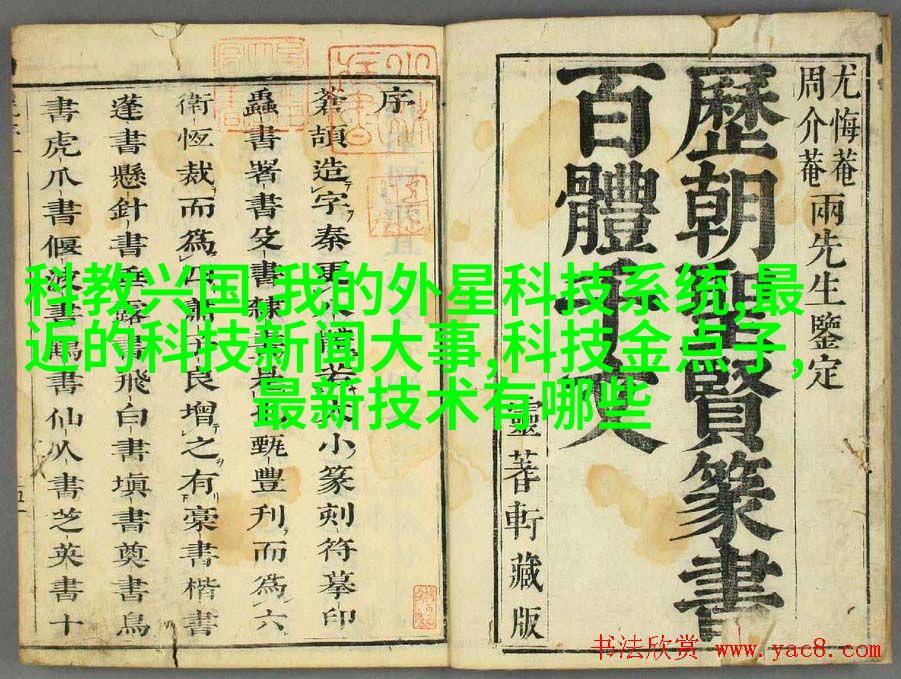 尤悔菴
周介菴
兩先生鑒定
歷朝聖賢篆書
百體千文
靈蓍軒藏版
序
蒼頡造字秦
小篆刻符摹印
蟲書署書殳書
甄豐刋而爲六
衛恆裁而爲四
艮增之有藁書楷書
蓬書懸針書
飛白書塡書奠書鳥
書虎爪書偃波書
書仙人書芝英書十
科教兴国,我的外星科技系统,最
近的科技新闻大事,科技金点子,
最新技术有哪些
书法欣赏 www.yac8.com